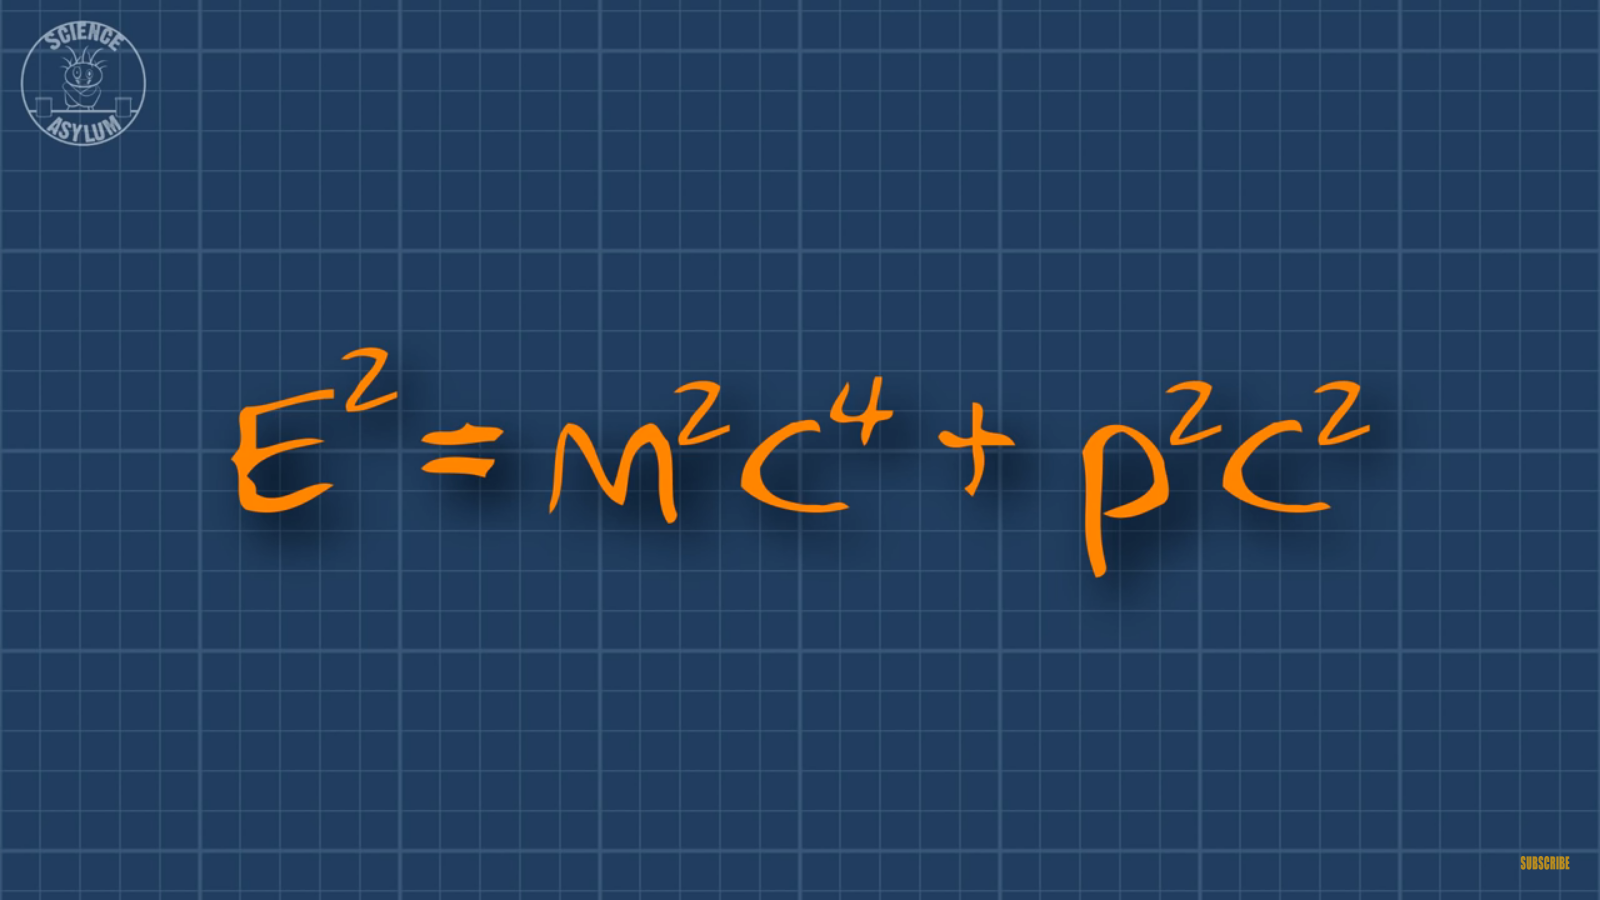 SCIENCE
ASYLUM
E² = m²c⁴ + p²c²
SUBSCRIBE